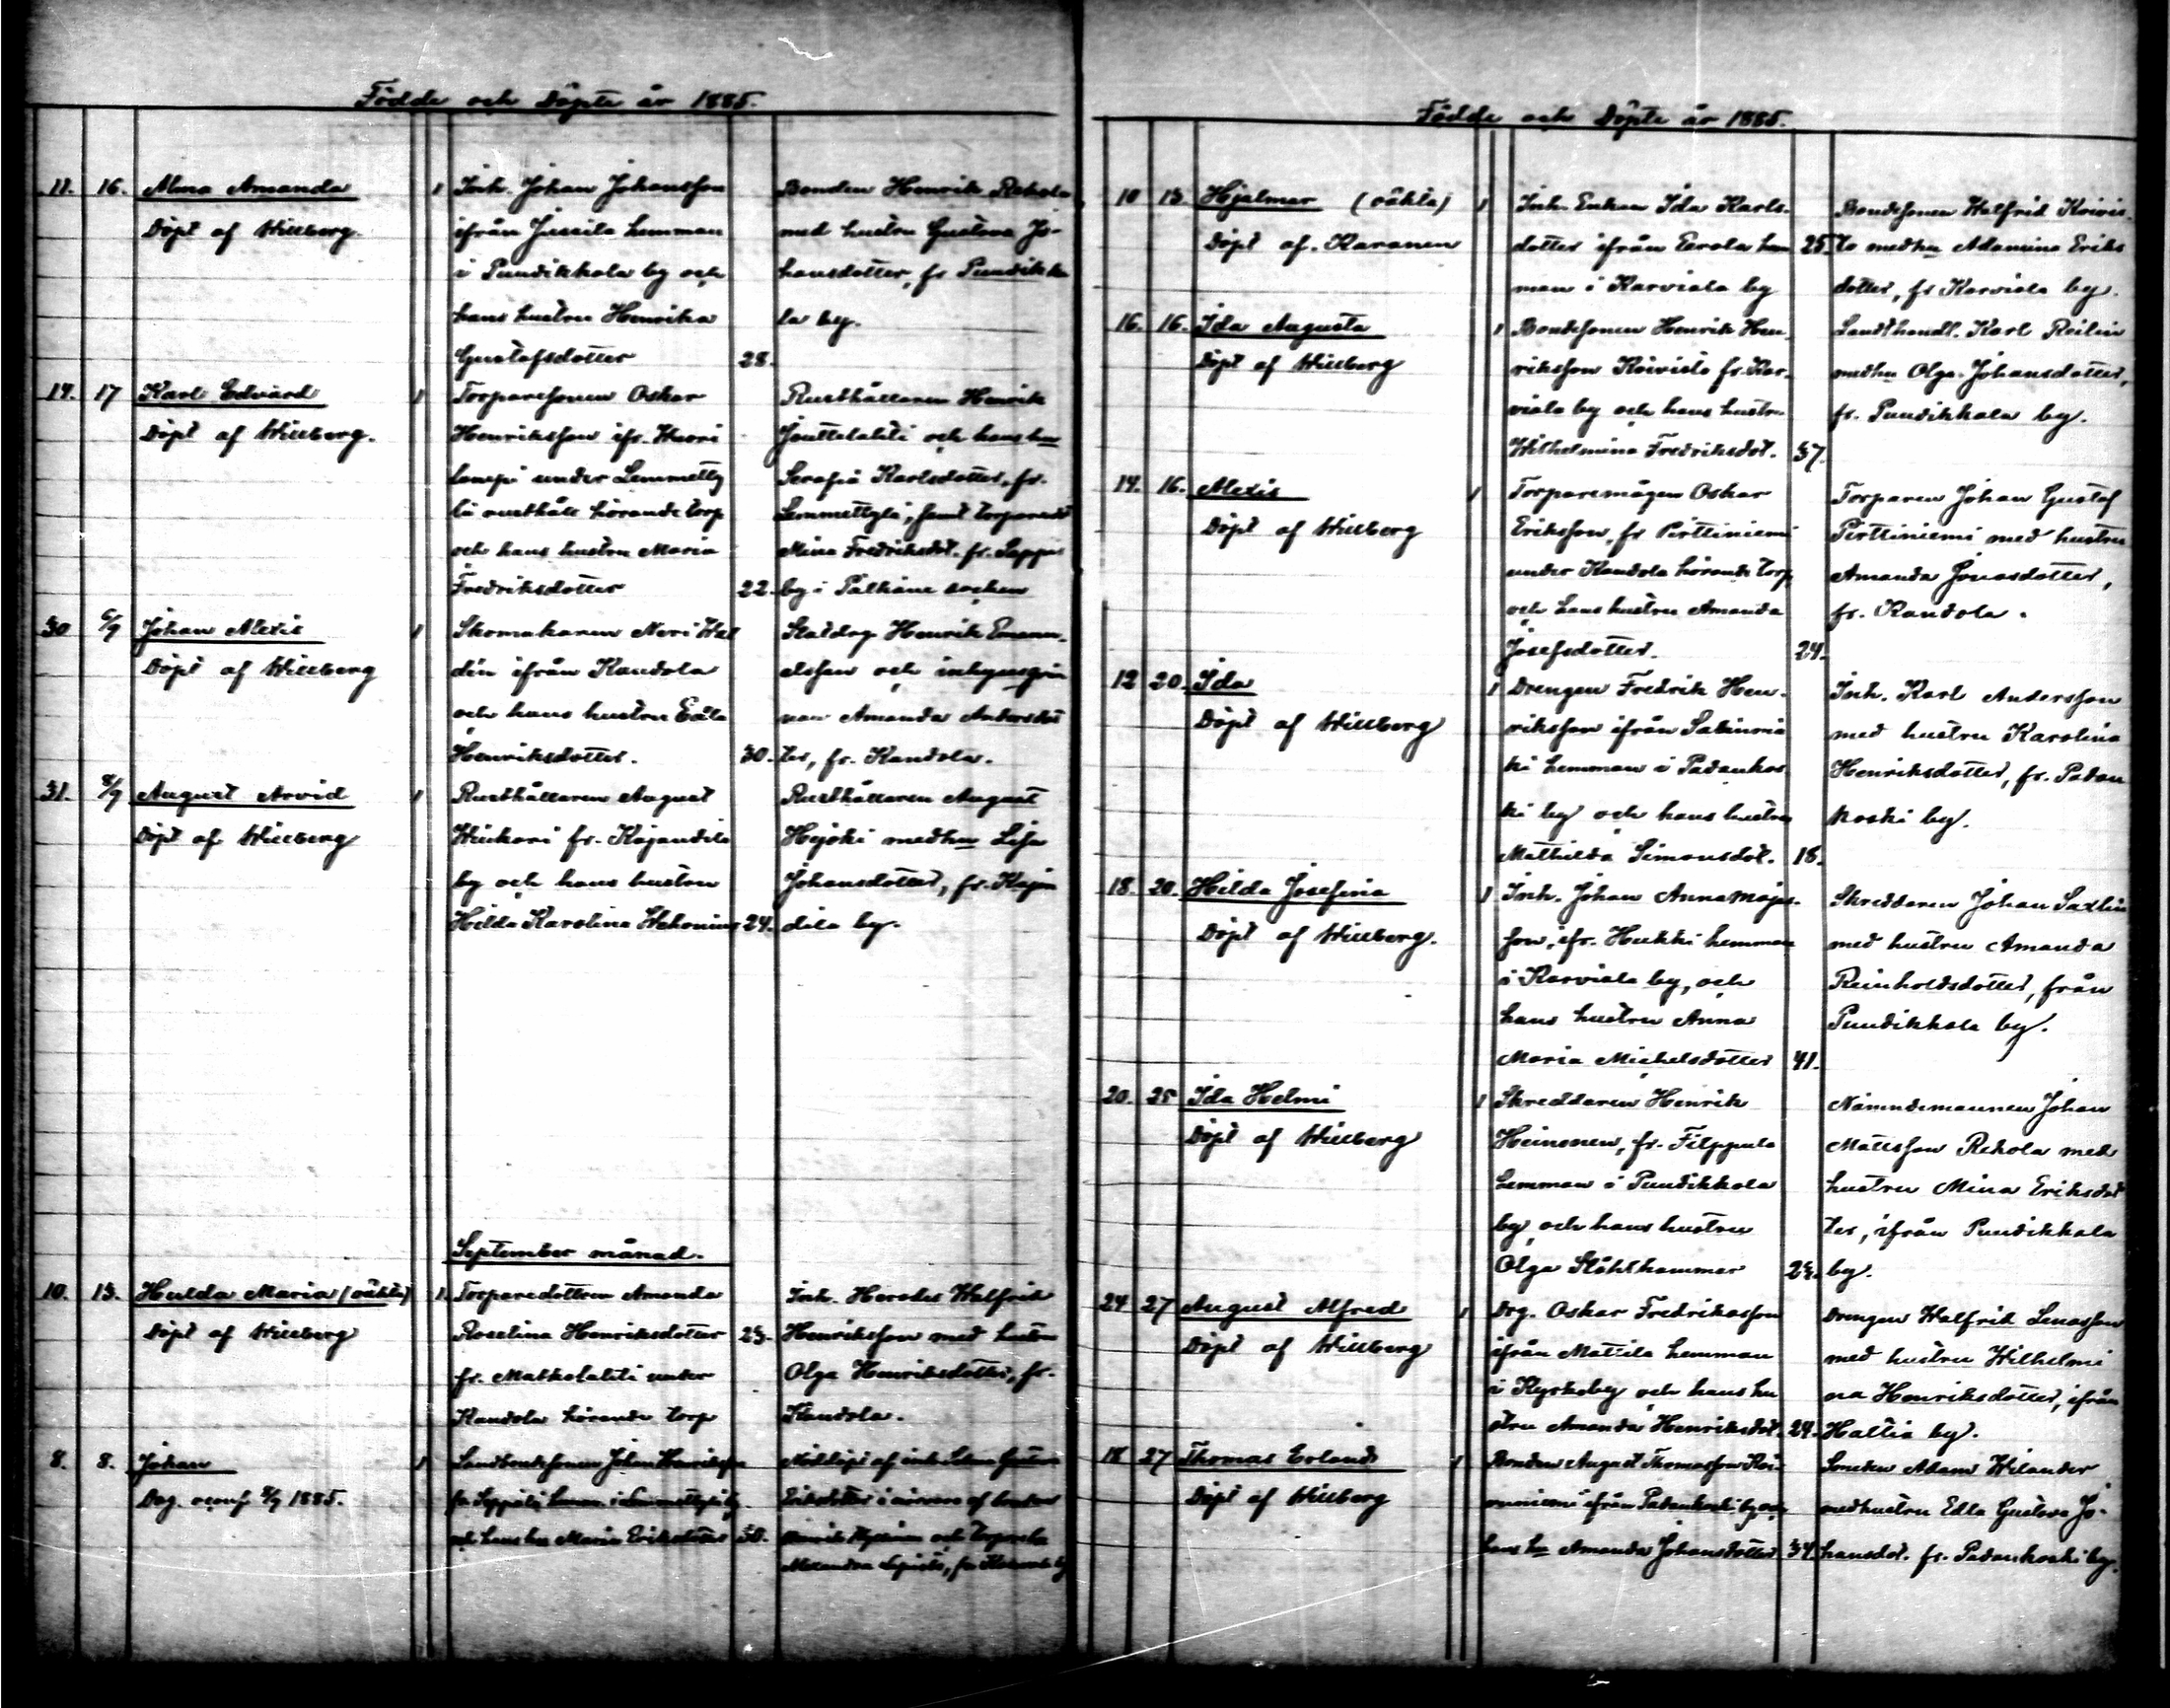 Födde och Döpte år 1885.
11. 16. Alma Amanda 1 Inh. Johan Johansson Bonden Henrik Rekola
Döpt af Willberg. ifrån Jussila hemman med hustru Gustava Jo-
i Pundikkala by och hansdotter, fr Pundikka
hans hustru Henrika la by.
Gustafsdotter 28.
14. 17 Karl Edvard 1 Torparesonen Oskar Rusthållaren Henrik
Döpt af Willberg. Henriksson ifr. och hans hu
under Lemmetty Serafia Karlsdotter, fr.
lä rusthåll hörande torp Lemmettylä, samt
och hans hustru Maria Mina Fredriksdot. fr.
Fredriksdotter 22. by i Pälkäne socken
30 6/9 Johan Alexis 1 Skomakaren Statdrg Henrik Emanu-
Döpt af Willberg ifrån Kandola elsson och
och hans hustru Edla Amanda Andersdot
Henriksdotter. 30. ter, fr. Kandola.
31. 8/9 August Arvid 1 Rusthållaren August Rusthållaren August
Döpt af Willberg fr. Kajandila Hejoki med hu Lisa
by och hans hustru Johansdotter, fr. Kajan
Hilda Karolina 24. dila by.
September månad.
10. 13. Hulda Maria (oäkta) 1. Torparedottren Amanda Inh. Herodes Walfrid
Döpt af Willberg Roselina Henriksdotter 23. Henriksson med hustru
fr. under Olga Henriksdotter, fr.
Kandola hörande torp Kandola.
8. 8. Johan 1 Johan Henriksson Nöddöpt af
1885.
och hans hu Maria Eriksdotter 30. och
Alexandra
Födde och Döpte år 1885.
10 13 Hjalmar (oäkta) 1 Inh. Enkan Ida Karls- Bondesonen Walfrid Koivis-
Döpt af. Karanen dotter ifrån Eerola hem 25. to med hu Adamina Eriks
man i Karviala by dotter, fr Karviala by.
16. 16. Ida Augusta 1 Bondesonen Henrik Hen- Landthandl. Karl
Döpt af Willberg riksson Koivisto fr. Kar- med hu Olga Johansdotter,
viala by och hans hustru fr. Pundikkala by.
Wilhelmina Fredriksdot. 37.
14. 16. Alexis 1 Torparemågen Oskar Torparen Johan Gustaf
Döpt af Willberg Eriksson, fr Pirttiniemi Pirttiniemi med hustru
under Kandola hörande torp Amanda Jonasdotter,
och hans hustru Amanda fr. Kandola.
Josefsdotter. 24.
12 20. Ida 1 Drengen Fredrik Hen- Inh. Karl Andersson
Döpt af Willberg riksson ifrån med hustru Karolina
ki hemman i Padankos Henriksdotter, fr. Padan
ki by och hans hustru koski by.
Mathilda Simonsdot. 18.
18. 20. Hilda Josefina 1 Inh. Johan Annamajas- Skreddaren Johan Saxlin
Döpt af Willberg. son, ifr. Hukki hemman med hustru Amanda
i Karviala by, och Reinholdsdotter, från
hans hustru Anna Pundikkala by.
Maria Michelsdotter 41.
20. 25 Ida Helmi 1 Skreddaren Henrik Nämndemannen Johan
Döpt af Willberg Heinonen, fr. Filppula Mattsson Rekola med
hemman i Pundikkala hustru Mina Eriksdot
by, och hans hustru ter, ifrån Pundikkala
Olga Stålhammar by.
24 27 August Alfred 1 Drg. Oskar Fredriksson Drengen Walfrid Enosson
Döpt af Willberg ifrån Mattila hemman med hustru Wilhelmi
i Kyrkoby och hans hu na Henriksdotter, ifrån
stru Amanda Henriksdot. 24. Haltia by.
18 27 Thomas Erland 1 Bonden August Thomasson Adam Wilander
Döpt af Willberg ifrån Padankoski by och med hustru Edla Gustava Jo-
hans hu Amanda Johansdotter 34 hansdot. fr. Padankoski by.